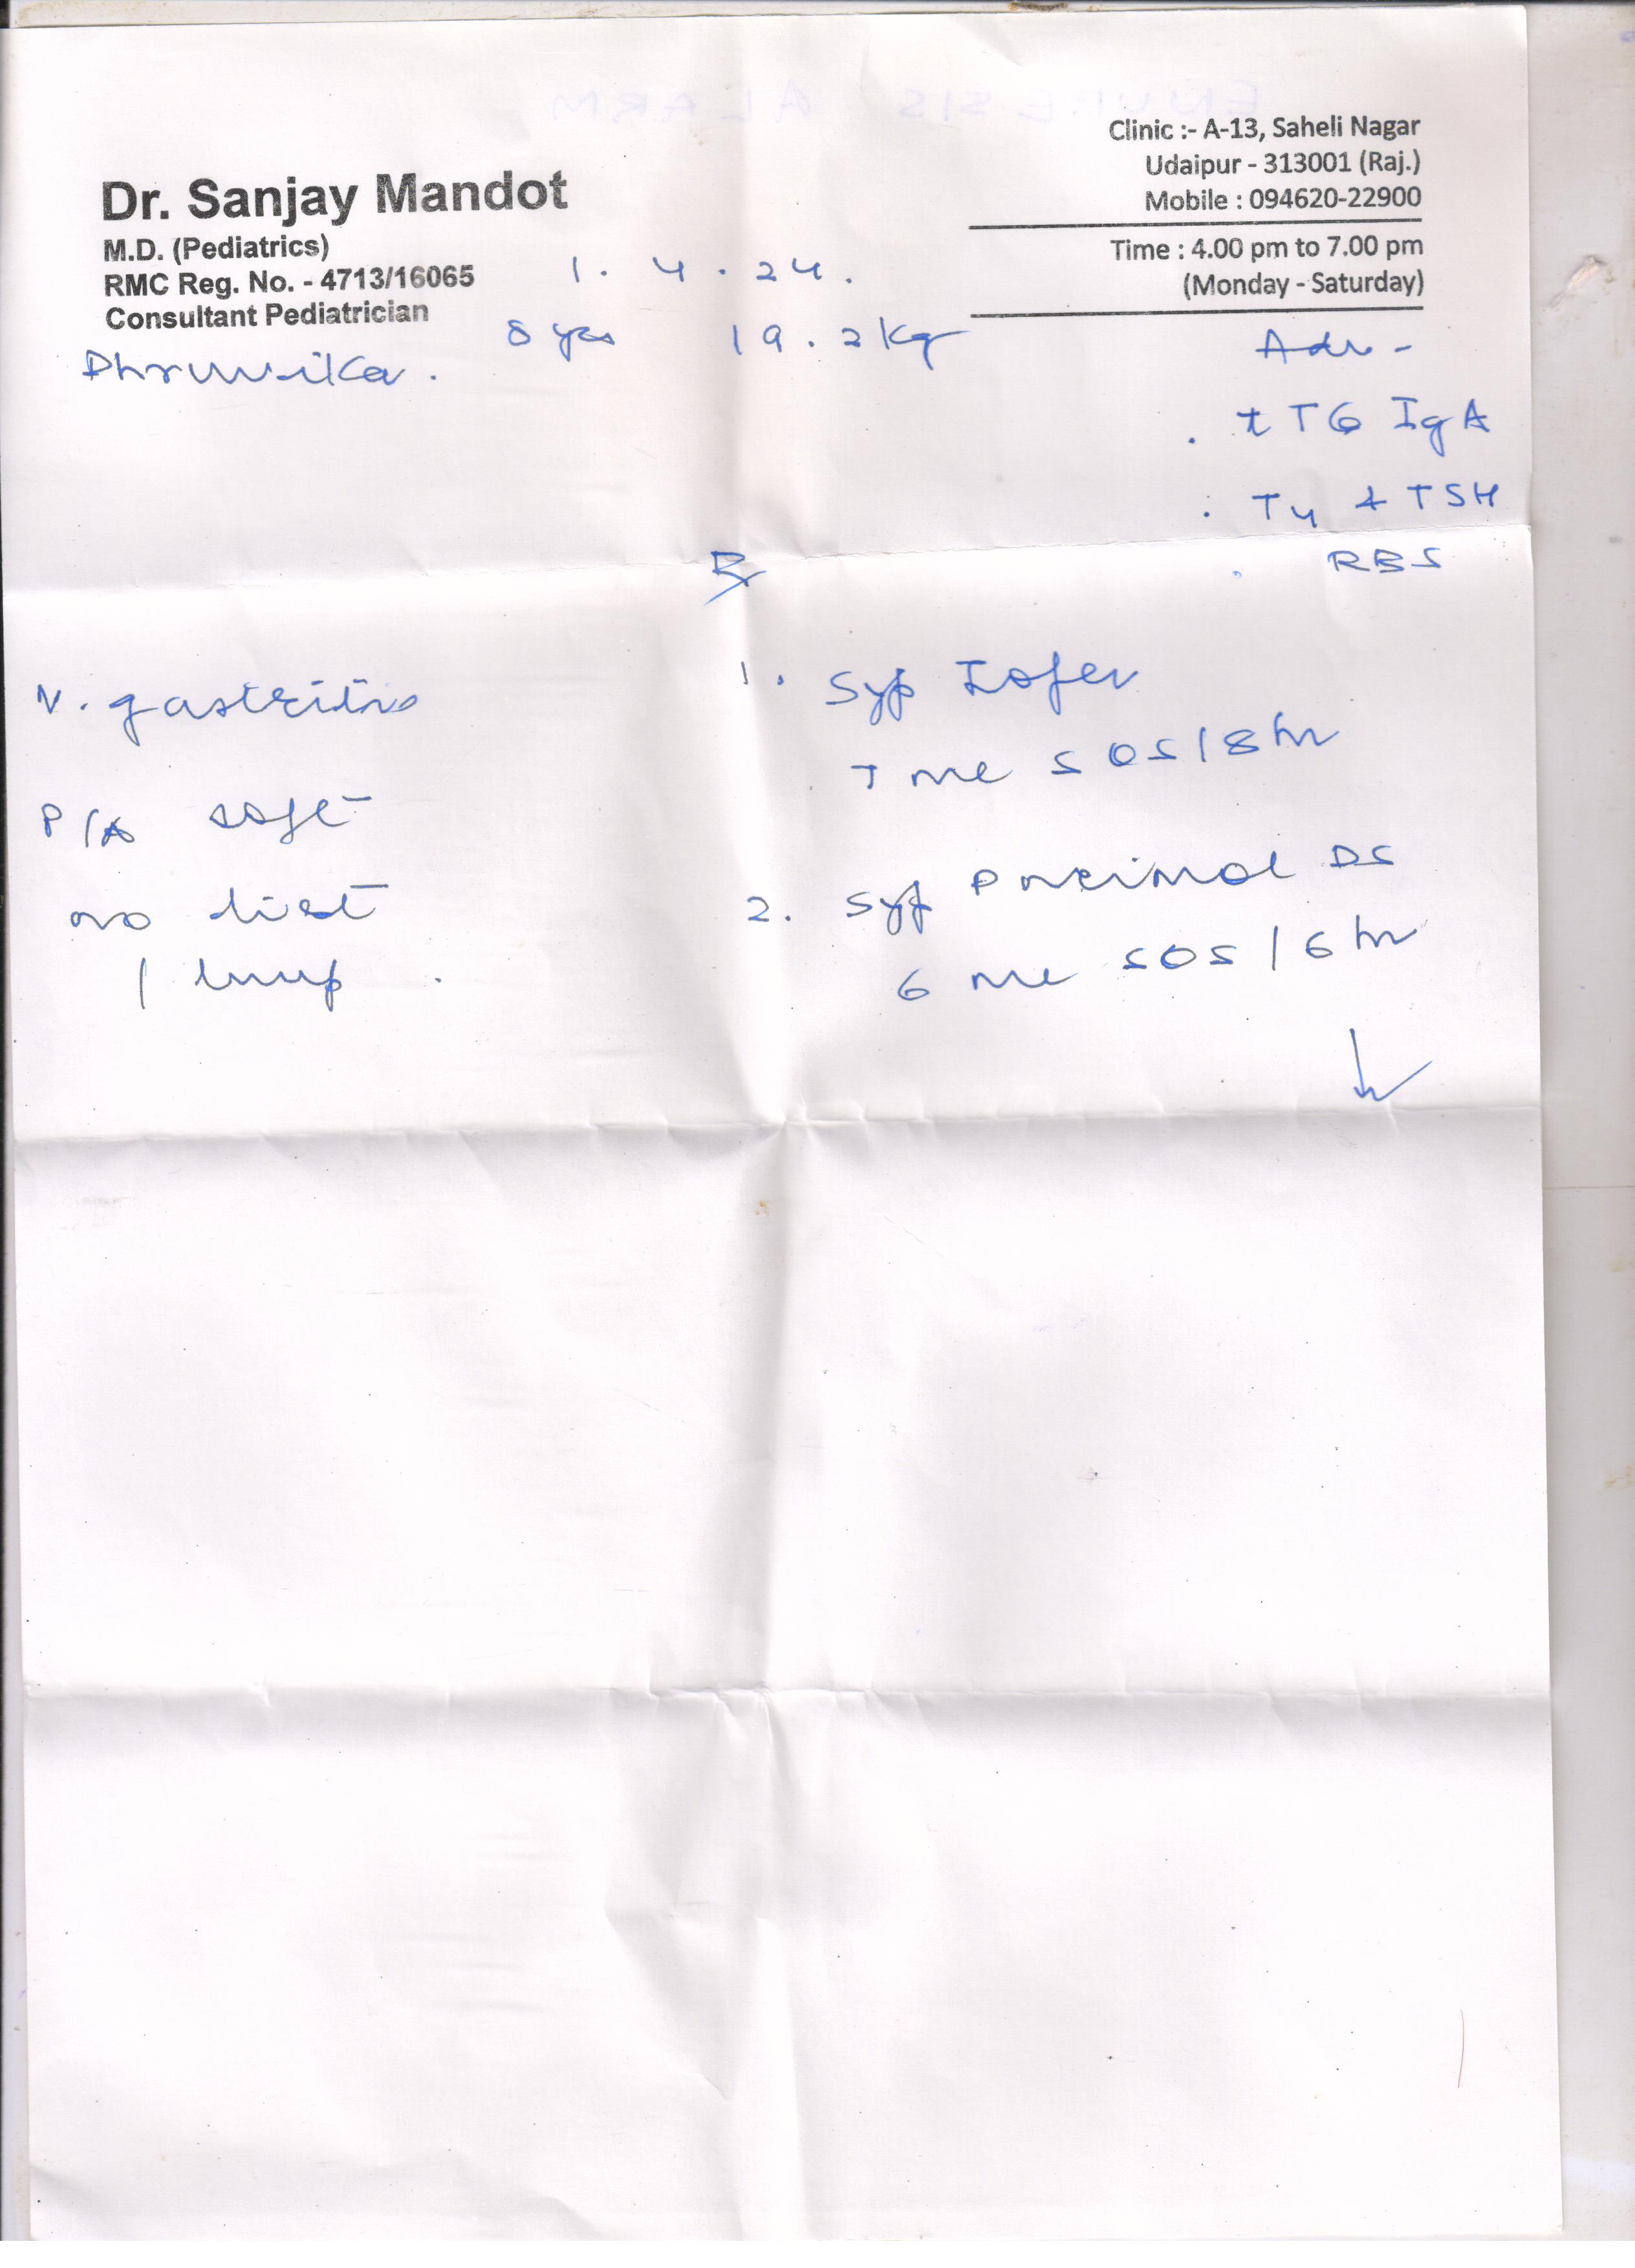 Dr. Sanjay Mandot
M.D. (Pediatrics)
RMC Reg. No. - 4713/16065
Consultant Pediatrician
Clinic :- A-13, Saheli Nagar
Udaipur - 313001 (Raj.)
Mobile : 094620-22900
Time : 4.00 pm to 7.00 pm
(Monday - Saturday)
1.4.24.
8 yrs 19.2 kg
Adv -
. tTG IgA
. T4 + TSH
. RBS
Rx
V. gastritis
P/A soft
no dist
/ lump .
1. Syp
ml SOS/8 hr
2. Syp DS
6 ml SOS/6 hr
ENURESIS ALARM